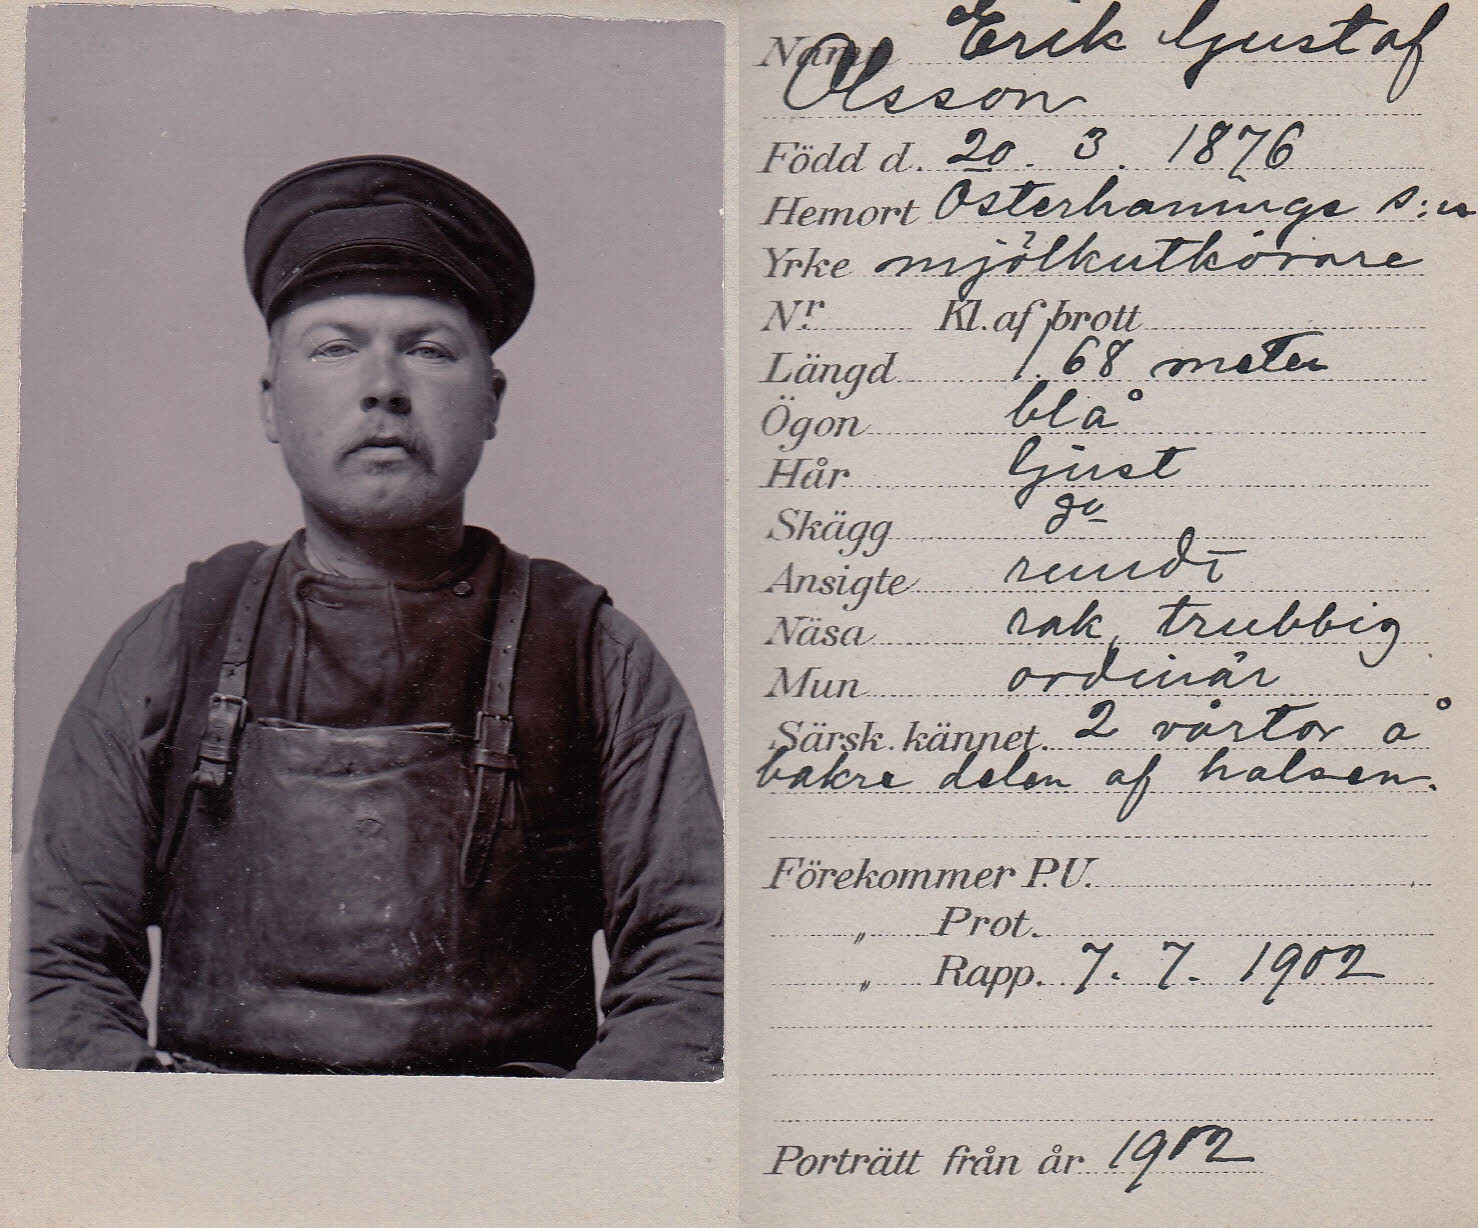 Namn Erik Gustaf
Olsson
Född d. 20. 3. 1876
Hemort Österhaninge s:n
Yrke mjölkutkörare
Nr. Kl. af brott
Längd 1.68 meter
Ögon blå
Hår ljust
Skägg
Ansigte rundt
Näsa rak, trubbig
Mun ordinär
Särsk. kännet. 2 vårtor å
bakre delen af halsen.
Förekommer P.U.
„ Prot.
„ Rapp. 7. 7. 1902
Porträtt från år 1902